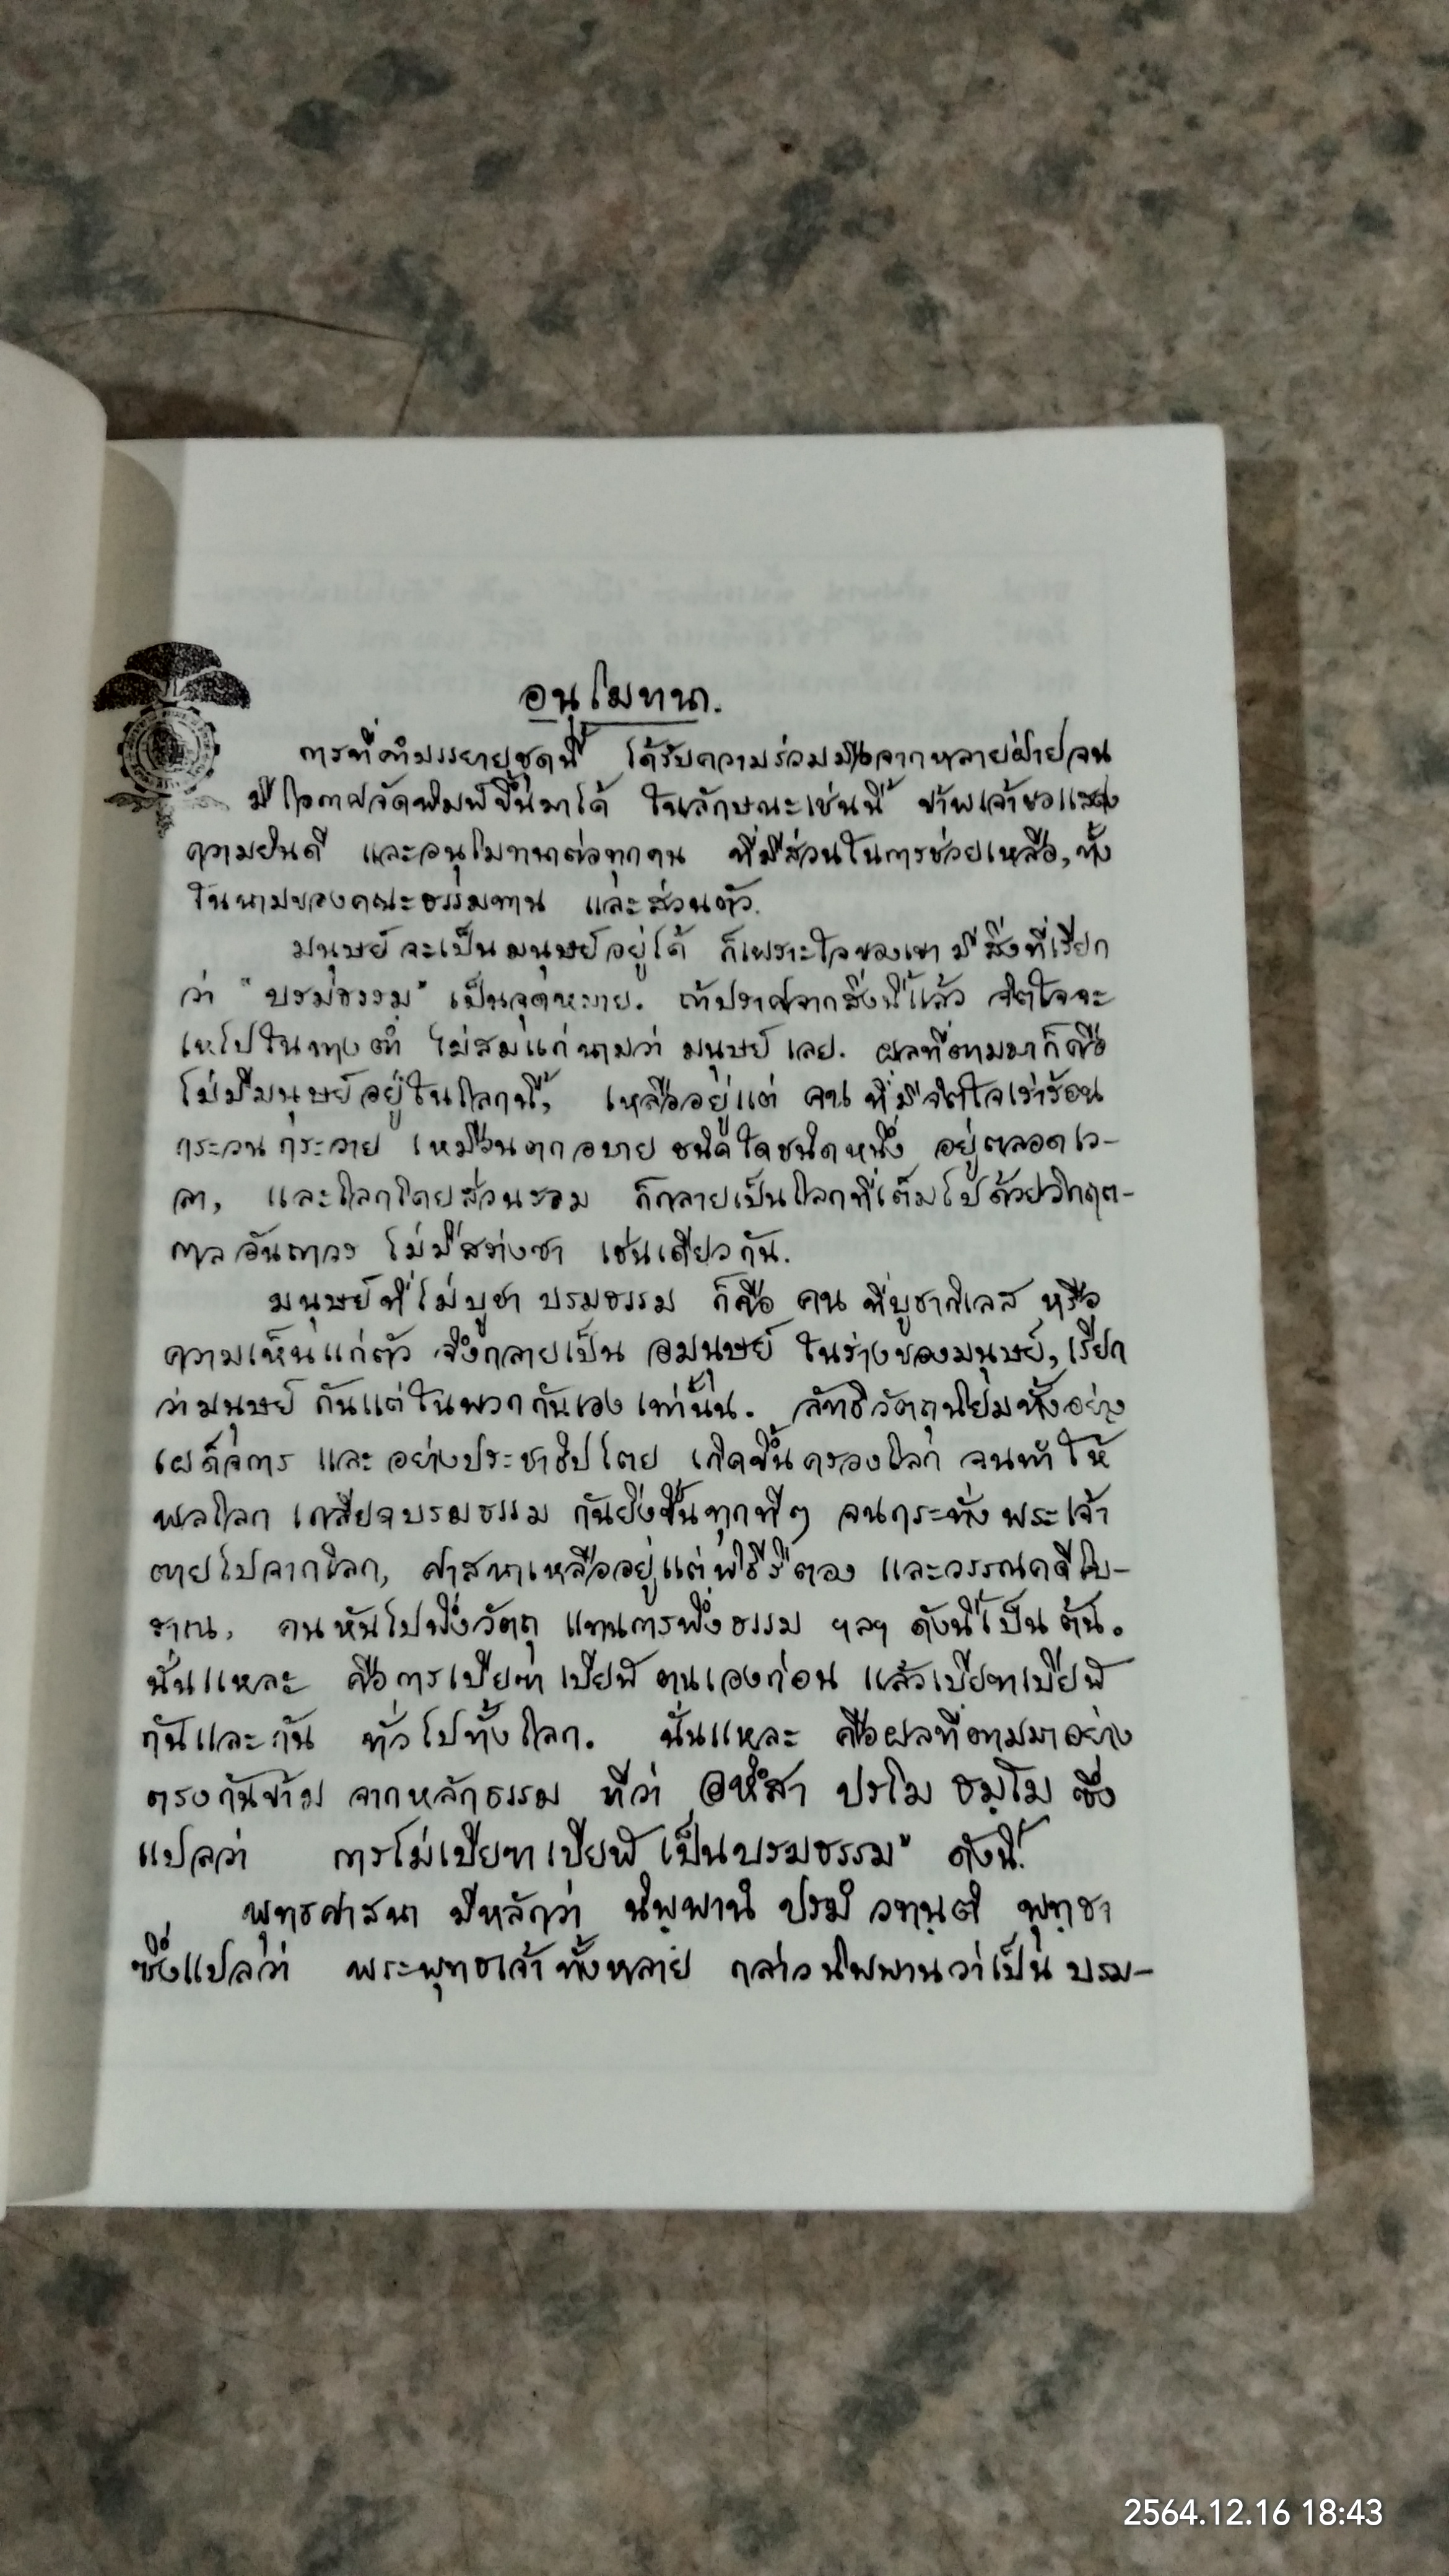 อนุโมทนา.
การที่คำบรรยายชุดนี้ ได้รับความร่วมมือจากหลายฝ่ายจน
มีโอกาสจัดพิมพ์ขึ้นมาได้ ในลักษณะเช่นนี้ ข้าพเจ้าขอแสดง
ความยินดี และอนุโมทนาต่อทุกคน ที่มีส่วนในการช่วยเหลือ, ทั้ง
ในนามของคณะธรรมทาน และส่วนตัว.
มนุษย์จะเป็นมนุษย์อยู่ได้ ก็เพราะใจของเขามีสิ่งที่เรียก
ว่า "บรมธรรม" เป็นจุดหมาย. ถ้าปราศจากสิ่งนี้แล้ว จิตใจจะ
เหไปในทางต่ำ ไม่สมแก่นามว่า มนุษย์ เลย. ผลที่ตามมาก็คือ
ไม่มีมนุษย์อยู่ในโลกนี้, เหลืออยู่แต่ คน ที่มีจิตใจเร่าร้อน
กระวนกระวาย เหมือนตกอบาย ชนิดใดชนิดหนึ่ง อยู่ตลอดเว-
ลา, และโลกโดยส่วนรวม ก็กลายเป็นโลกที่เต็มไปด้วยวิกฤต-
กาลอันถาวร ไม่มีสร่างซา เช่นเดียวกัน.
มนุษย์ที่ไม่บูชา บรมธรรม ก็คือ คน ที่บูชากิเลส หรือ
ความเห็นแก่ตัว จึงกลายเป็น อมนุษย์ ในร่างของมนุษย์, เรียก
ว่ามนุษย์ กันแต่ในพวกกันเอง เท่านั้น. ลัทธิวัตถุนิยมทั้งอย่าง
เผด็จการ และอย่างประชาธิปไตย เกิดขึ้นครองโลก จนทำให้
พลโลก เกลียดบรมธรรม กันยิ่งขึ้นทุกทีๆ จนกระทั่ง พระเจ้า
ตายไปจากโลก, ศาสนาเหลืออยู่แต่พิธีรีตอง และวรรณคดีโบ-
ราณ, คนหันไปพึ่งวัตถุ แทนการพึ่งธรรม ฯลฯ ดังนี้เป็นต้น.
นั่นแหละ คือการเบียดเบียน ตนเองก่อน แล้วเบียดเบียน
กันและกัน ทั่วไปทั้งโลก. นั่นแหละ คือผลที่ตามมาอย่าง
ตรงกันข้าม จากหลักธรรม ที่ว่า อหึสา ปรโม ธมฺโม ซึ่ง
แปลว่า การไม่เบียดเบียน เป็นบรมธรรม" ดังนี้.
พุทธศาสนา มีหลักว่า นิพฺพานํ ปรมํ วทนฺติ พุทฺธา
ซึ่งแปลว่า พระพุทธเจ้าทั้งหลาย กล่าวนิพพานว่าเป็น บรม-
2564.12.16 18:43